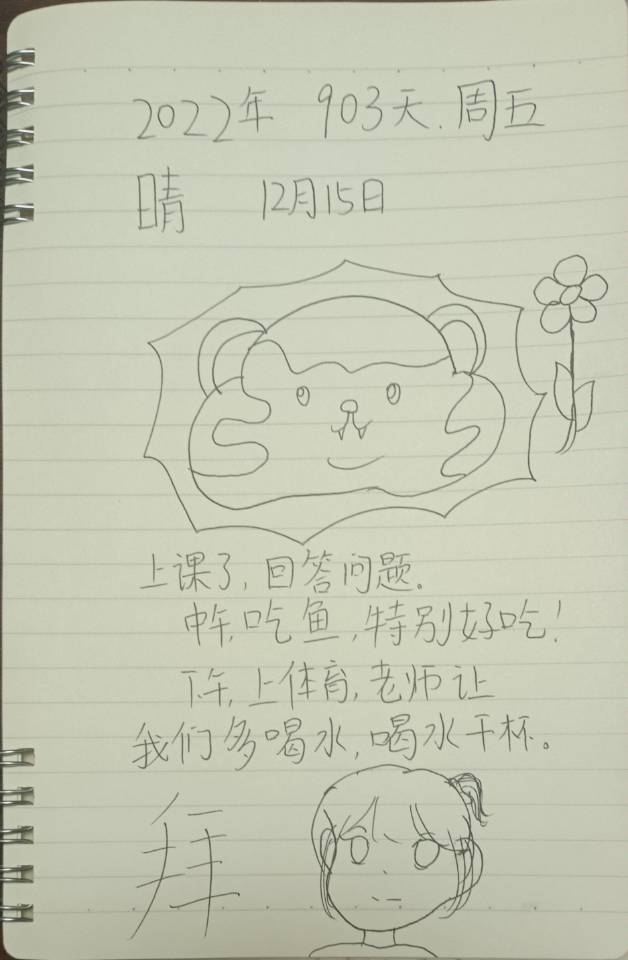 2022年 903天.周五
晴 12月15日
上课了,回答问题。
中午,吃鱼,特别好吃!
下午,上体育,老师让
我们多喝水,喝水干杯。
拜